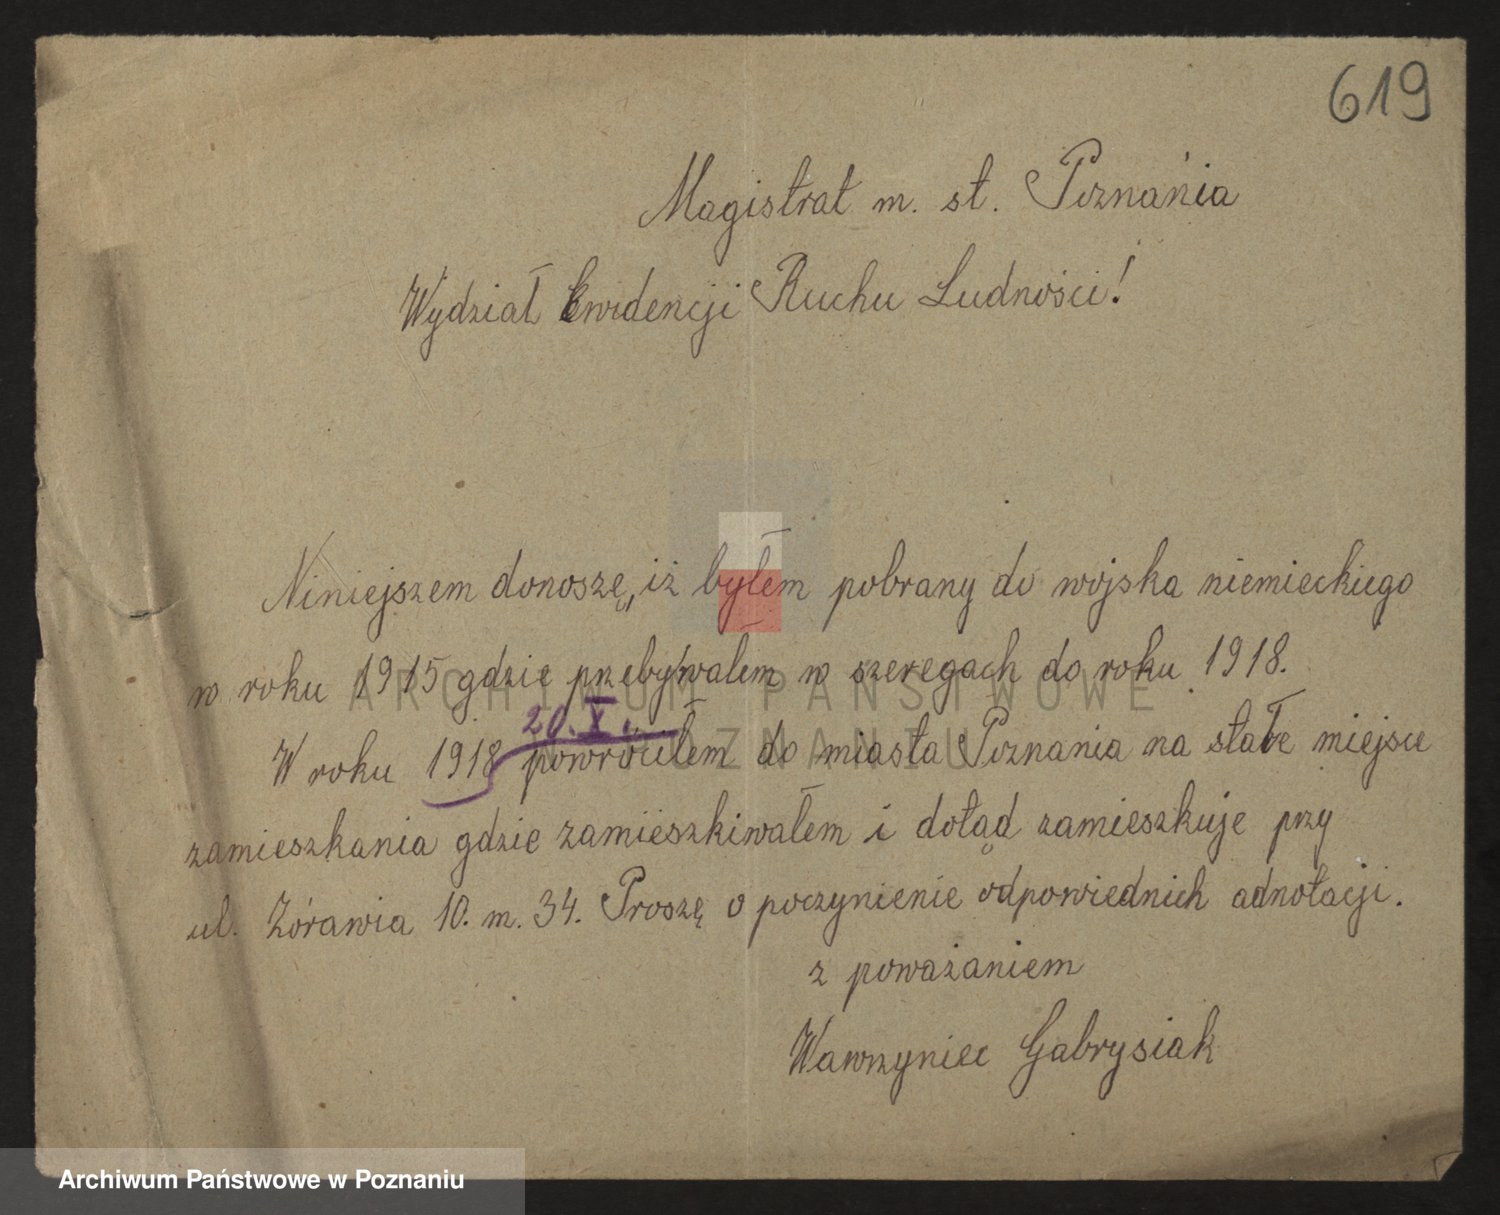 619
Magistrat m. st. Poznánia
Wydział Ewidencji Ruchu Ludności!
Niniejszem donoszę, iż byłem pobrany do wojska niemieckiego
w roku 1915 gdzie przebywałem w szeregach do roku 1918.
20. X.
W roku 1918 powróciłem do miasta Poznania na stałe miejsce
zamieszkania gdzie zamieszkiwałem i dotąd zamieszkuje przy
ul. Żórawia 10. m. 34. Proszę o poczynienie odpowiednich adnotacji.
z poważaniem
Wawrzyniec Gabrysiak
ARCHIWUM PAŃSTWOWE
W POZNANIU
Archiwum Państwowe w Poznaniu